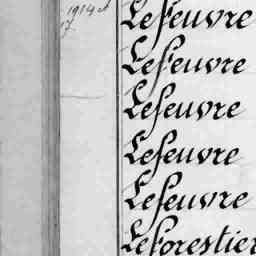 1914
17
Lefeuvre
Lefeuvre
Lefeuvre
Lefeuvre
Lefeuvre
Leforestier